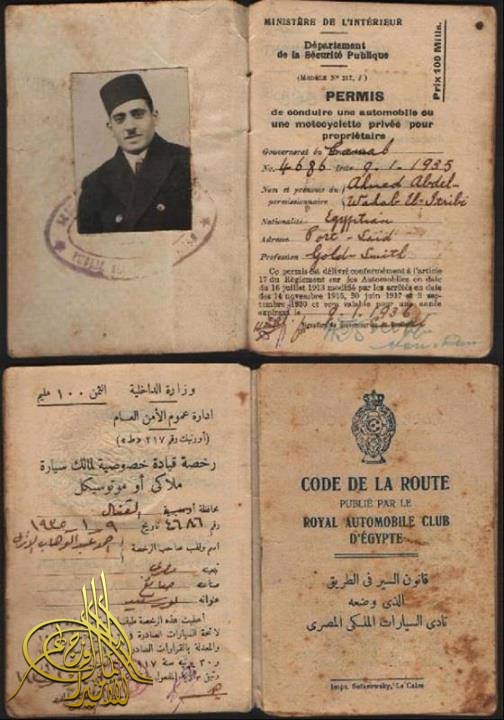 MINISTÈRE DE L'INTÉRIEUR
Département
de la Sécurité Publique
(MODÈLE N° 217,
Prix 100 Mills.
PERMIS
de conduire une automobile ou
une motocyclette privée pour
propriétaire
Gouvernorat du Canal
No. 4686 9.1.1935
Nom et prénoms du Ahmed Abdel-
permissionnaire Wahab El-
Nationalité Egyptian
Adresse Port-Said
Profession Gold-Smith
Ce permis est délivré conformément à l'article
17 du Règlement sur les Automobiles en date
du 16 juillet 1913 modifié par les arrêtés en date
des 14 novembre 1915, 30 juin 1917 et 8 sep-
tembre 1930 et sera valable pour une année
expirant le 9.1.1936
وزارة الداخلية الثمن ١٠٠ مليم
ادارة عموم الأمن العام
(أورنيك رقم ٢١٧ «ط»)
رخصة قيادة خصوصية لمالك سيارة
ملاكى أو موتوسيكل
محافظة القنال
رقم ٤٦٨٦ تاريخ ٩ - ١ - ١٩٣٥
اسم ولقب صاحب الرخصة احمد عبد الوهاب
مصرى
صناعته صايغ
عنوانه بورسعيد
أعطيت هذه الرخصة
لائحة السيارات الصادرة
والمعدلة بالقرارات الصادرة
CODE DE LA ROUTE
PUBLIÉ PAR LE
ROYAL AUTOMOBILE CLUB
D'ÉGYPTE
قانون السير فى الطريق
الذى وضعه
نادى السيارات الملكى المصرى